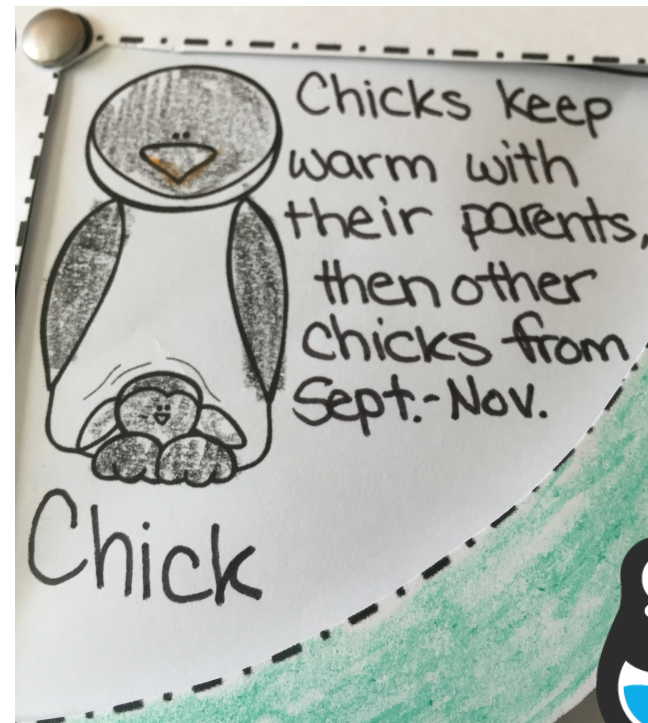 Chicks keep
warm with
their parents,
then other
chicks from
Sept.-Nov.
Chick